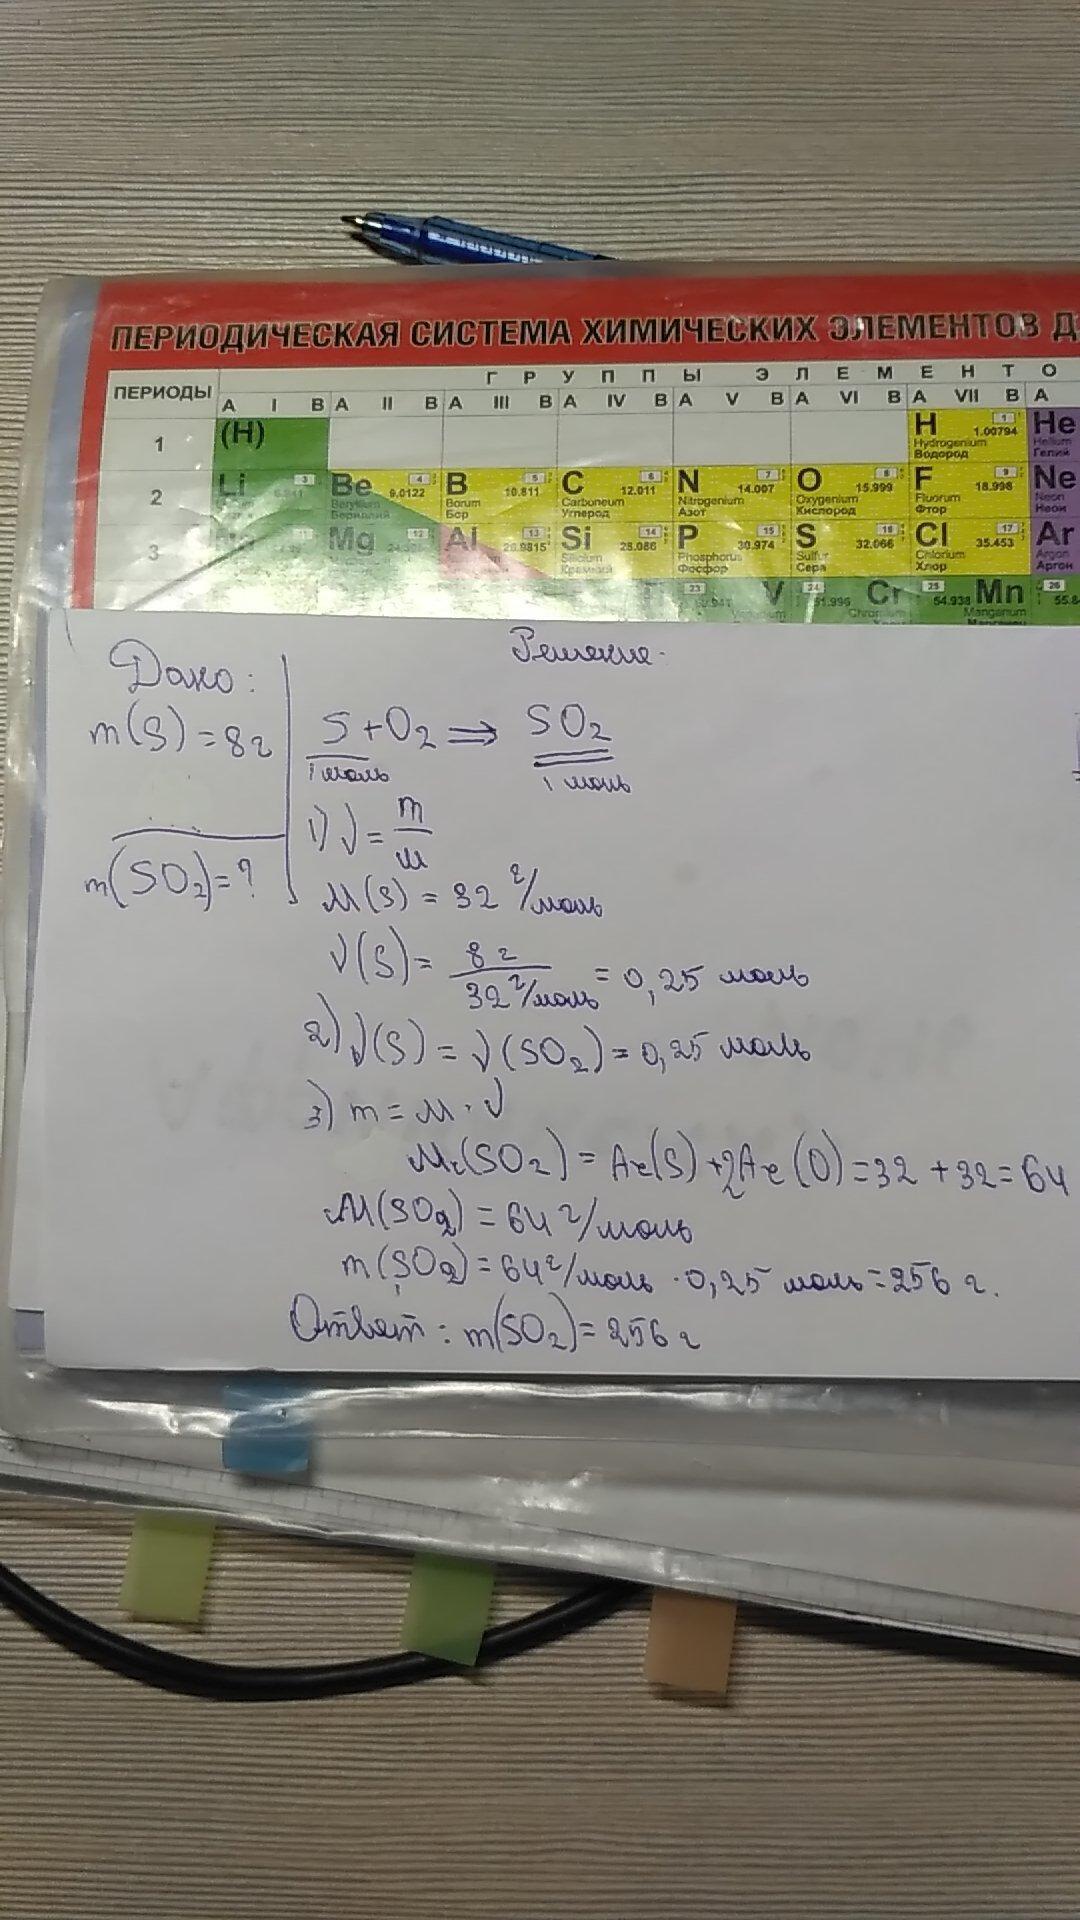 ПЕРИОДИЧЕСКАЯ СИСТЕМА ХИМИЧЕСКИХ ЭЛЕМЕНТОВ Д
ПЕРИОДЫ
Г Р У П П Ы Э Л Е М Е Н Т О
A I B A II B A III B A IV B A V B A VI B A VII B A
1 (H) H 1 1.00794 Hydrogenium Водород He Helium Гелий
2 Li 3 Be 4 9.0122 Beryllium Бериллий B 5 10.811 Borum Бор C 6 12.011 Carboneum Углерод N 7 14.007 Nitrogenium Азот O 8 15.999 Oxygenium Кислород F 9 18.998 Fluorum Фтор Ne Neon Неон
3 Mg 12 Al 13 26.9815 Si 14 28.086 Silicium Кремний P 15 30.974 Phosphorus Фосфор S 16 32.066 Sulfur Сера Cl 17 35.453 Chlorium Хлор Ar Argon Аргон
23 V 24 51.996 Cr 25 54.938 Mn Manganum 26 55.8
Дано:
m(S) = 8г
m(SO2) = ?
Решение.
S + O2 ⇒ SO2
1 моль 1 моль
1) ν = m/M
M(S) = 32 г/моль
ν(S) = 8 г / 32 г/моль = 0,25 моль
2) ν(S) = ν(SO2) = 0,25 моль
3) m = M · ν
Mr(SO2) = Ar(S) + 2Ar(O) = 32 + 32 = 64
M(SO2) = 64 г/моль
m(SO2) = 64 г/моль · 0,25 моль = 256 г.
Ответ: m(SO2) = 256 г